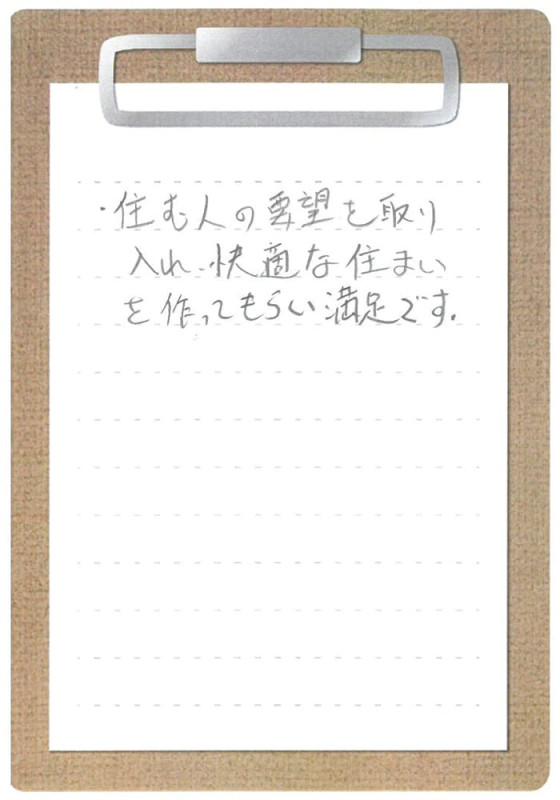 ・住む人の要望を取り
入れ、快適な住まい
を作ってもらい満足です.